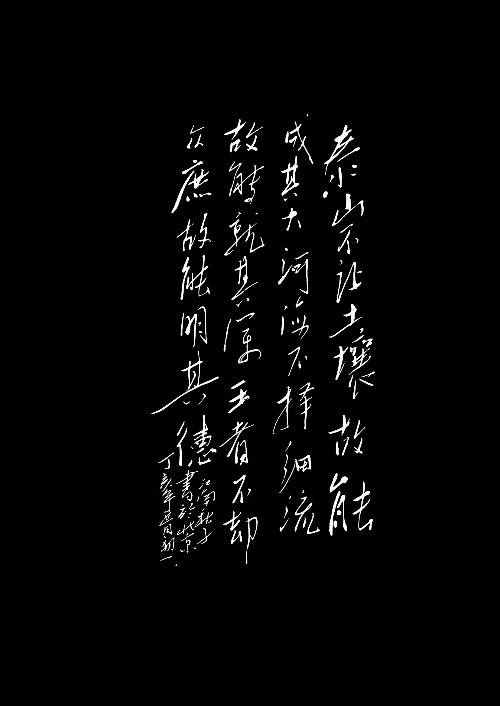 泰山不让土壤故能
成其大河海不择细流
故能就其深王者不却
众庶故能明其德
江南
書於北京
丁亥年月初一